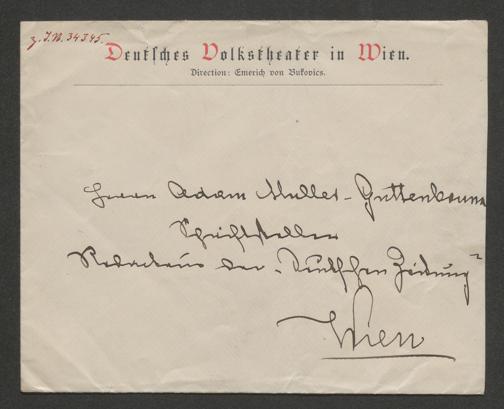 z. I.N. 34345.
Deutsches Volkstheater in Wien.
Direction: Emerich von Bukovics.
Herrn Adam Müller-Guttenbrunn
Schriftsteller
Redacteur der „Deutschen Zeitung"
Wien